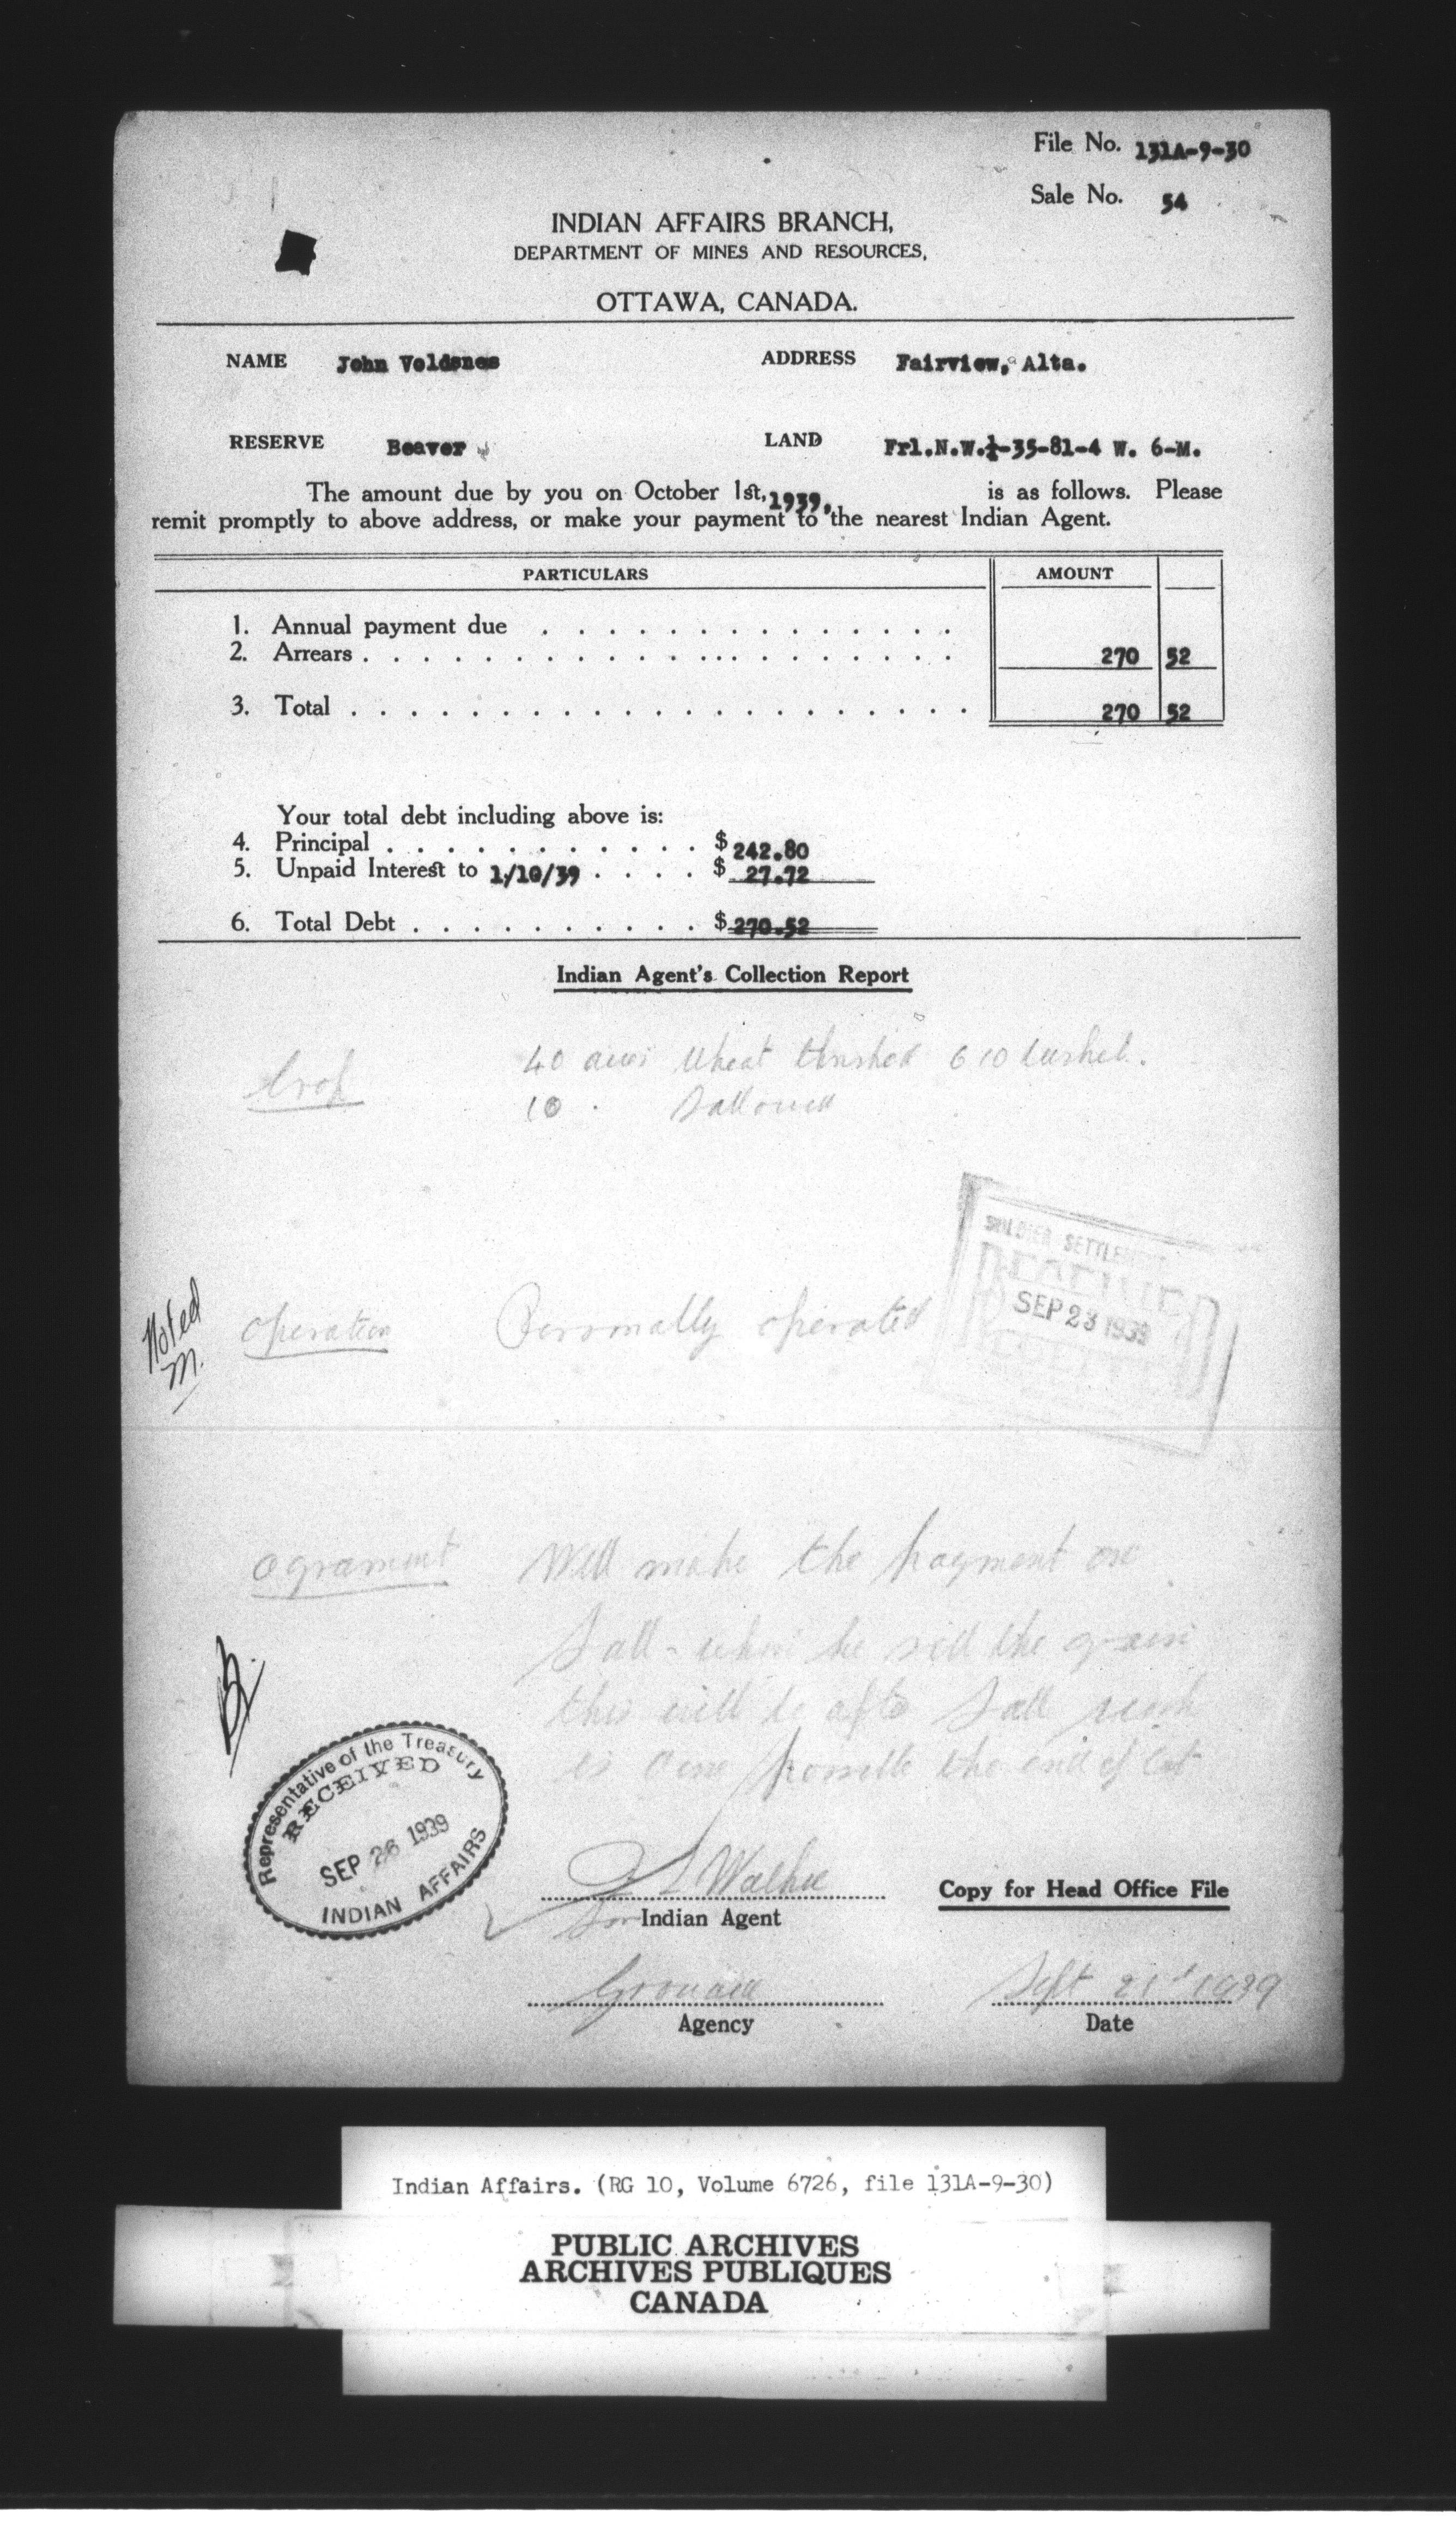 File No. 131A-9-30
Sale No. 54
INDIAN AFFAIRS BRANCH,
DEPARTMENT OF MINES AND RESOURCES,
OTTAWA, CANADA.
NAME John Veldsnes ADDRESS Fairview, Alta.
RESERVE Beaver LAND Frl.N.W.¼-35-81-4 W. 6-M.
The amount due by you on October 1st, 1939, is as follows. Please
remit promptly to above address, or make your payment to the nearest Indian Agent.
PARTICULARS AMOUNT
1. Annual payment due . . . . . . . . . . . . . .
2. Arrears . . . . . . . . . . . . . . . . . . . . 270 52
3. Total . . . . . . . . . . . . . . . . . . . . . 270 52
Your total debt including above is:
4. Principal . . . . . . . . . . . $ 242.80
5. Unpaid Interest to 1/10/39 . . . . $ 27.72
6. Total Debt . . . . . . . . . . $ 270.52
Indian Agent's Collection Report
Crop 40 acres wheat thrashed 610 bushel.
10 .
SOLDIER SETTLEMENT
RECEIVED
SEP 23 1939
Noted
M.
operation Personally operated
agrament Will make the payment
Fall - when he sell the grain
this will be after Fall work
is done the end of Oct
B.
Representative of the Treasury
RECEIVED
SEP 26 1939
INDIAN AFFAIRS
L Walker
for Indian Agent
Copy for Head Office File
Grouard Sept 21st 1939
Agency Date
Indian Affairs. (RG 10, Volume 6726, file 131A-9-30)
PUBLIC ARCHIVES
ARCHIVES PUBLIQUES
CANADA